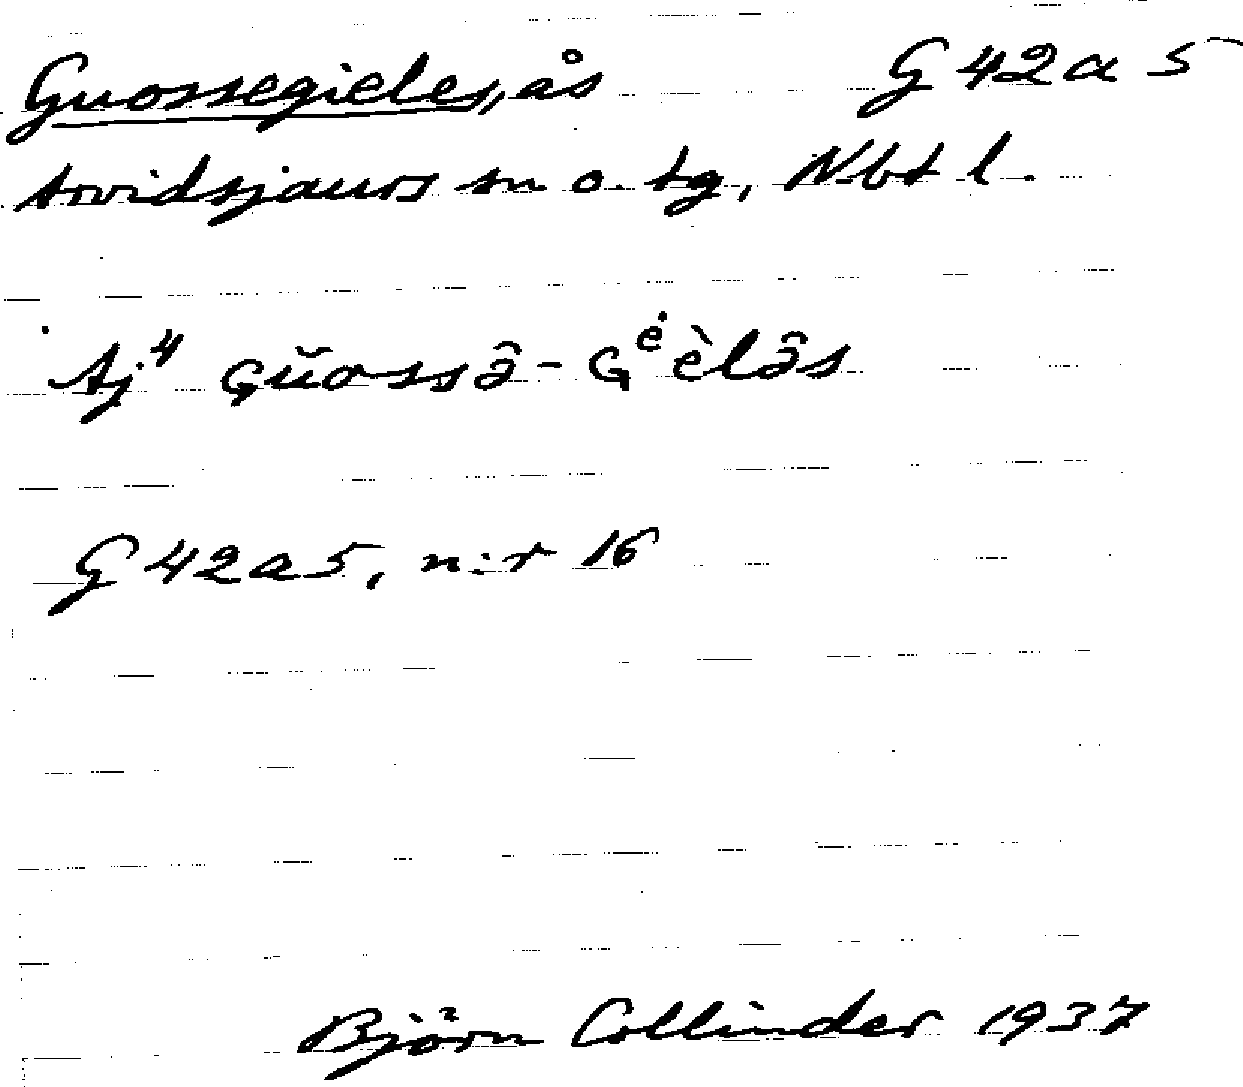 Guossegieles, ås G 42 a 5
Arvidsjaurs sn o. tg, Nbt l.
Aj⁴ Gŭossə̂-Gėèlə̂s
G 42 a 5, n:r 16
Björn Collinder 1937